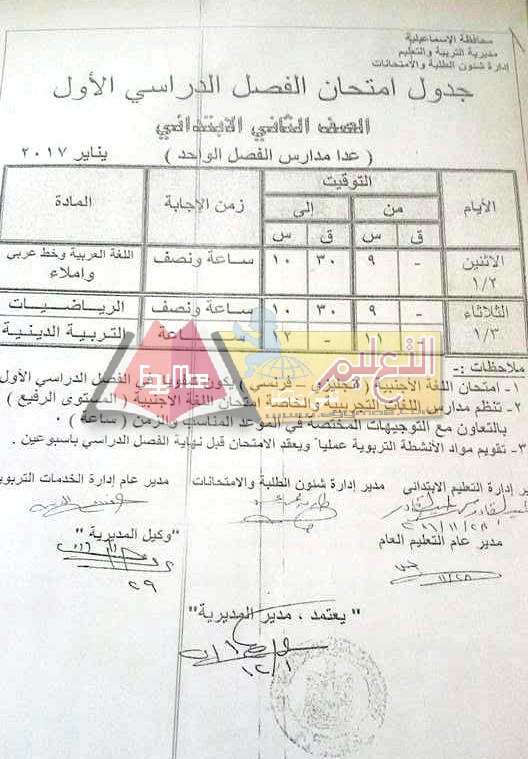 محافظة الإسماعيلية
مديرية التربية والتعليم
إدارة شئون الطلبة والامتحانات
جدول امتحان الفصل الدراسي الأول
الصف الثاني الابتدائي
( عدا مدارس الفصل الواحد ) يناير ٢٠١٧
الأيام التوقيت زمن الإجابة المادة
من إلى
ق س ق س
الاثنين ١/٢ - ٩ ٣٠ ١٠ ساعة ونصف اللغة العربية وخط عربي وإملاء
الثلاثاء ١/٣ - ٩ ٣٠ ١٠ ساعة ونصف الرياضيات
- ١١ - ١٢ ساعة التربية الدينية
التعليم
ملاحظات :-
١- امتحان اللغة الأجنبية ( إنجليزي - فرنسي ) يكون شفوي في الفصل الدراسي الأول
٢- تنظم مدارس اللغات التجريبية والخاصة امتحان اللغة الأجنبية ( المستوى الرفيع )
بالتعاون مع التوجيهات المختصة في الموعد المناسب والزمن ( ساعة ) .
٣- تقويم مواد الأنشطة التربوية عملياً ويعقد الامتحان قبل نهاية الفصل الدراسي بأسبوعين .
مدير إدارة التعليم الابتدائي مدير إدارة شئون الطلبة والامتحانات مدير عام إدارة الخدمات التربوية
مدير عام التعليم العام "وكيل المديرية "
١١/٢٨
٢٩
" يعتمد ، مدير المديرية "
١٢/١